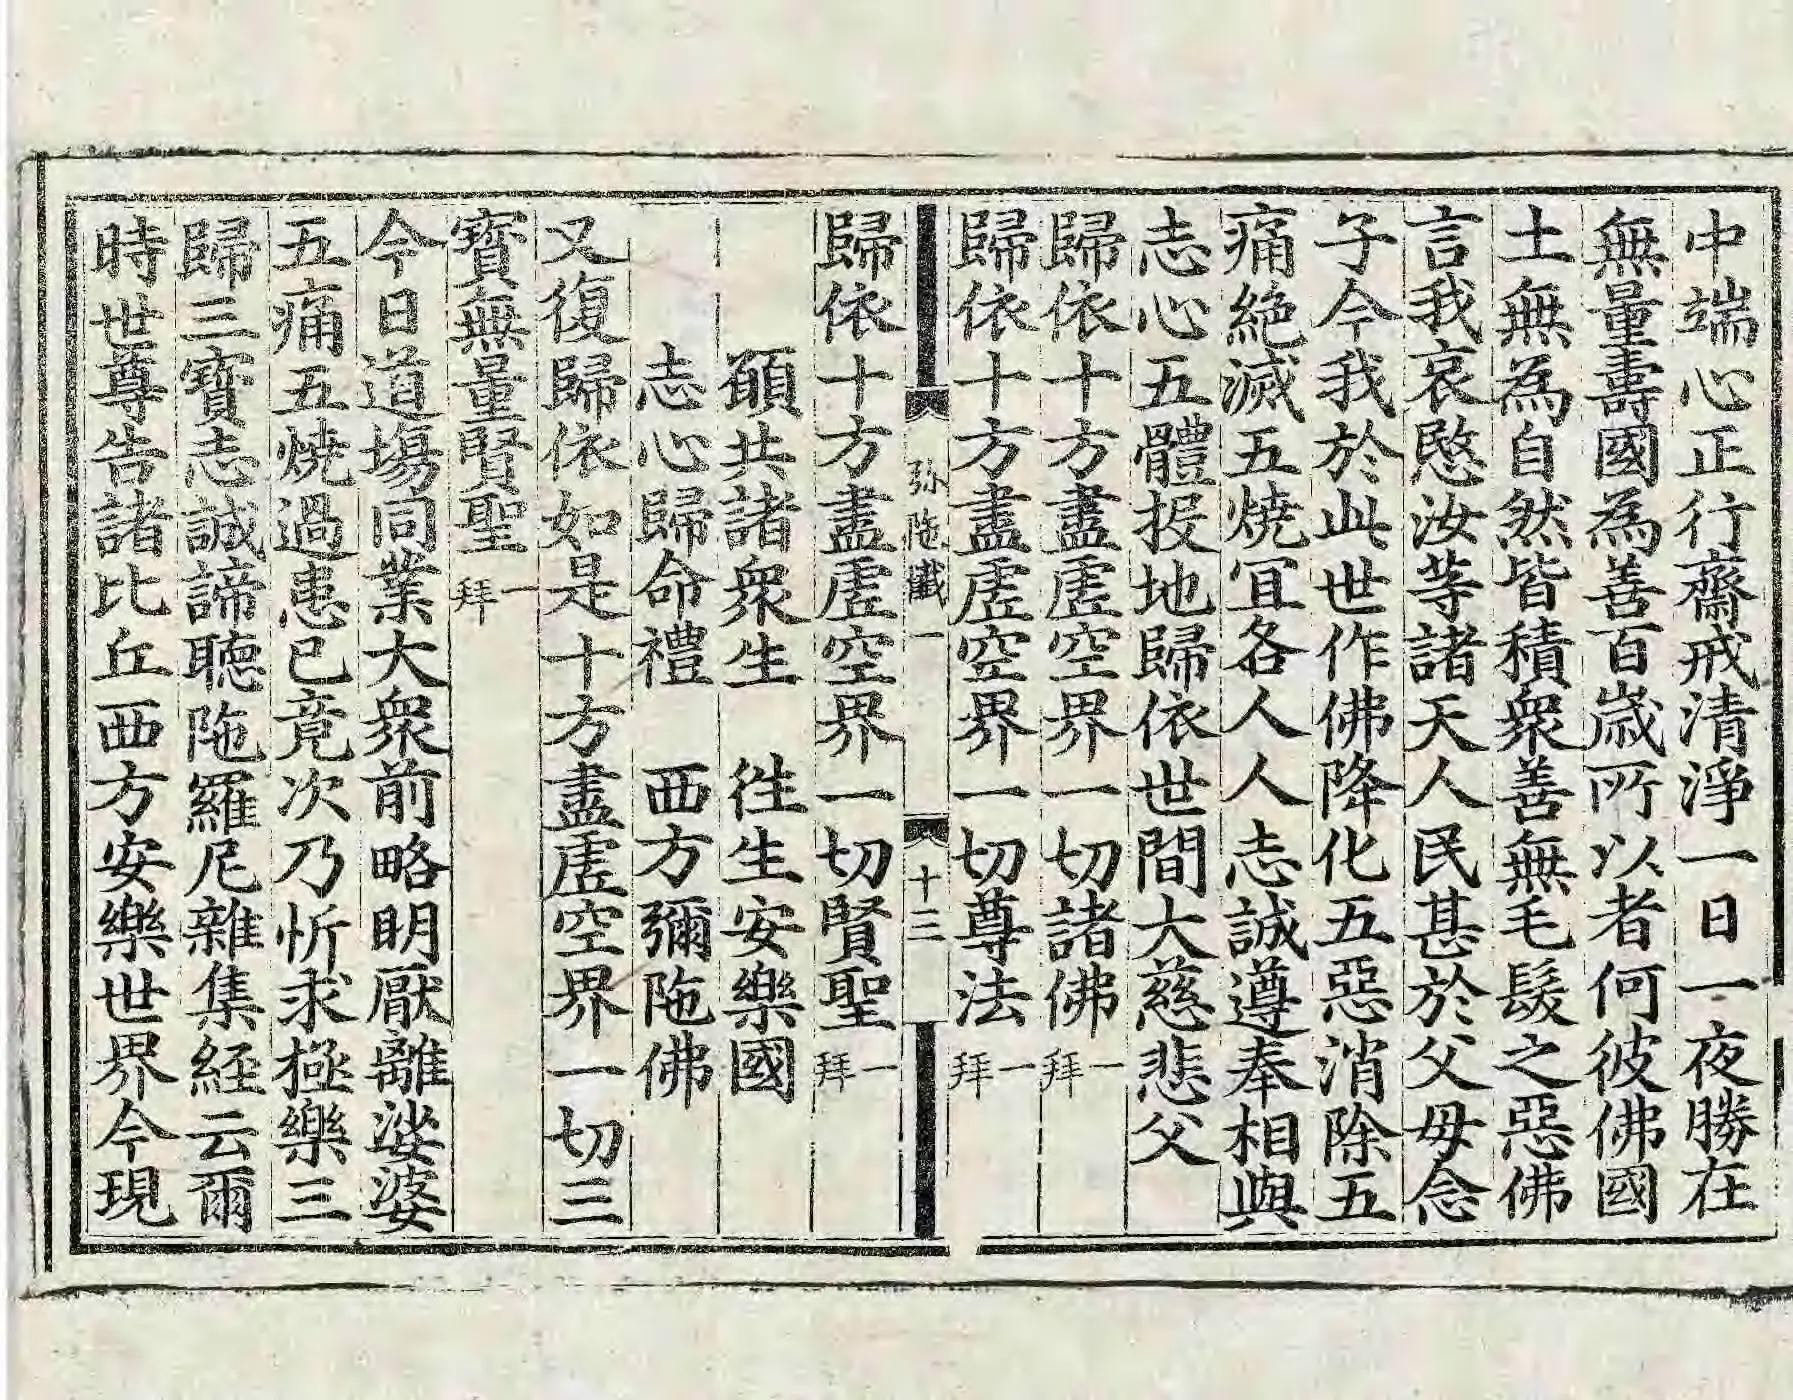 中端心正行齋戒清淨一日一夜勝在
無量壽國為善百歲所以者何彼佛國
土無為自然皆積衆善無毛髮之惡佛
言我哀愍汝等諸天人民甚於父母念
子今我於此世作佛降化五惡消除五
痛絕滅五燒宜各人人志誠遵奉相與
志心五體投地歸依世間大慈悲父
歸依十方盡虛空界一切諸佛一拜
歸依十方盡虛空界一切尊法一拜
弥陁懺一 十三
歸依十方盡虛空界一切賢聖一拜
願共諸衆生 徃生安樂國
志心歸命禮 西方彌陁佛
又復歸依如是十方盡虛空界一切三
寳無量賢聖一拜
今日道場同業大衆前略明厭離娑婆
五痛五燒過患已竟次乃忻求極樂三
歸三寳志誠諦聽陁羅尼雜集經云爾
時世尊告諸比丘西方安樂世界今現